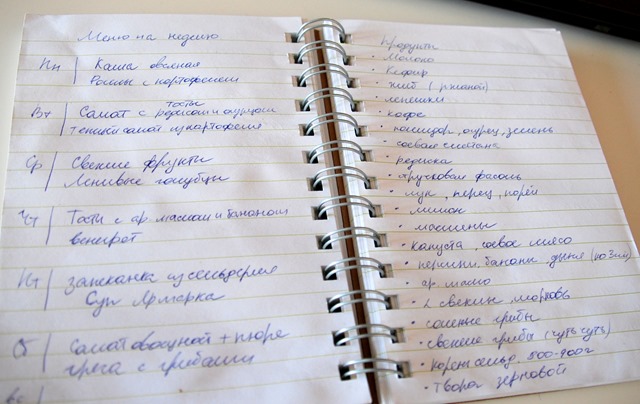 Меню на неделю
Пн
Каша овсяная
Роллы с картофелем
Вт
Тосты
Салат с редисом и огурцом
Теплый салат из картофеля
Ср
Свежие фрукты
Ленивые голубцы
Чт
Тосты с ар. маслом и бананом
винегрет
Пт
Запеканка из сельдерея
Суп Ярмарка
Сб
Салат овощной + пюре
греча с грибами
Вс
Продукты
• Молоко
• Кефир
• хлеб (ржаной)
• лепешки
• кофе
• помидор, огурец, зелень
• соевая сметана
• редиска
• стручковая фасоль
• лук, перец, порей
• лимон
• маслины
• капуста, соевое мясо
• персики, бананы, дыня
• ар. масло
• 2 свеклы, морковь
• соленые грибы
• свежие грибы (чуть чуть)
• корень сельд. 500-900г
• творог зерновой